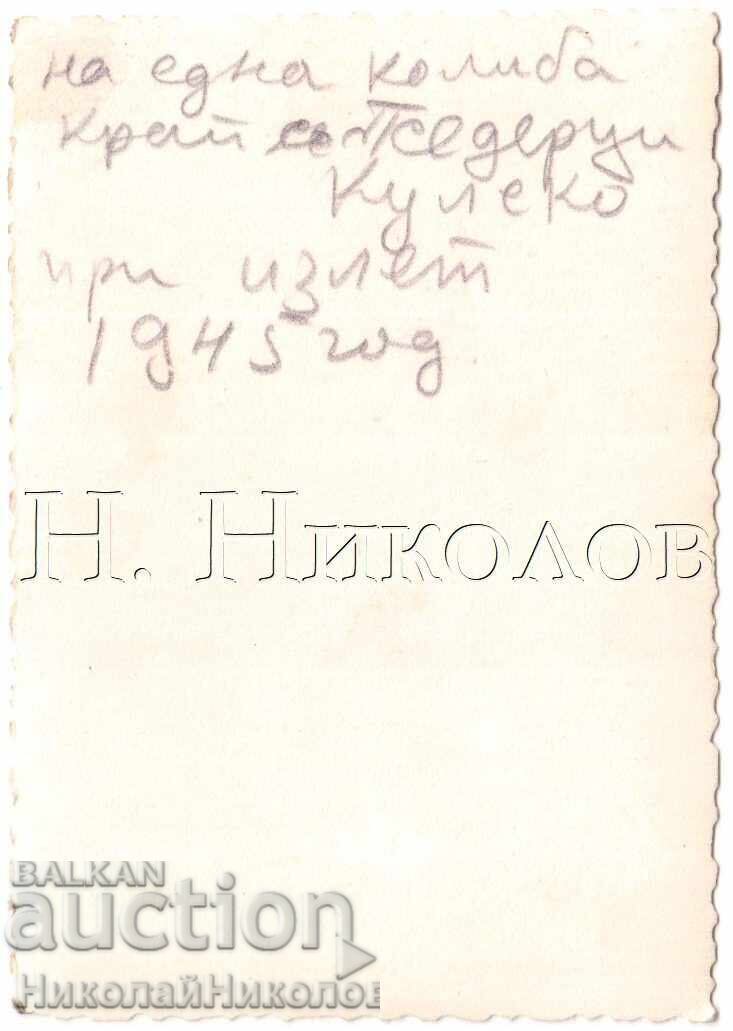 на една колиба
край
Кулеко
при излет
1945 год
Н. Николов
BALKAN
auction
НиколайНиколов